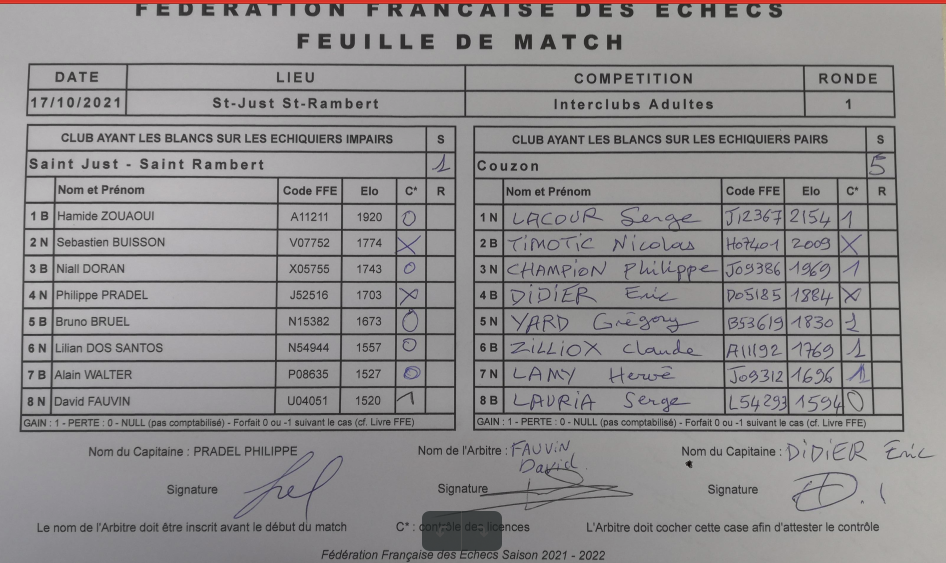 FEDERATION FRANCAISE DES ECHECS
FEUILLE DE MATCH
DATE LIEU COMPETITION RONDE
17/10/2021 St-Just St-Rambert Interclubs Adultes 1
CLUB AYANT LES BLANCS SUR LES ECHIQUIERS IMPAIRS S CLUB AYANT LES BLANCS SUR LES ECHIQUIERS PAIRS S
Saint Just - Saint Rambert 1 Couzon 5
Nom et Prénom Code FFE Elo C* R Nom et Prénom Code FFE Elo C* R
1 B Hamide ZOUAOUI A11211 1920 0 1 N LACOUR Serge J12367 2154 1
2 N Sebastien BUISSON V07752 1774 X 2 B TIMOTIC Nicolas H07401 2009 X
3 B Niall DORAN X05755 1743 0 3 N CHAMPION Philippe J09386 1969 1
4 N Philippe PRADEL J52516 1703 X 4 B DIDIER Eric D05185 1884 X
5 B Bruno BRUEL N15382 1673 0 5 N YARD Grégory B53619 1830 1
6 N Lilian DOS SANTOS N54944 1557 0 6 B ZILLIOX Claude A11192 1769 1
7 B Alain WALTER P08635 1527 0 7 N LAMY Hervé J09312 1696 1
8 N David FAUVIN U04051 1520 1 8 B LAURIA Serge L54293 1594 0
GAIN : 1 - PERTE : 0 - NULL (pas comptabilisé) - Forfait 0 ou -1 suivant le cas (cf. Livre FFE) GAIN : 1 - PERTE : 0 - NULL (pas comptabilisé) - Forfait 0 ou -1 suivant le cas (cf. Livre FFE)
Nom du Capitaine : PRADEL PHILIPPE Nom de l'Arbitre : FAUVIN Nom du Capitaine : DIDIER Eric
David
Signature Signature Signature
Le nom de l'Arbitre doit être inscrit avant le début du match C* : contrôle des licences L'Arbitre doit cocher cette case afin d'attester le contrôle
Fédération Française des Echecs Saison 2021 - 2022